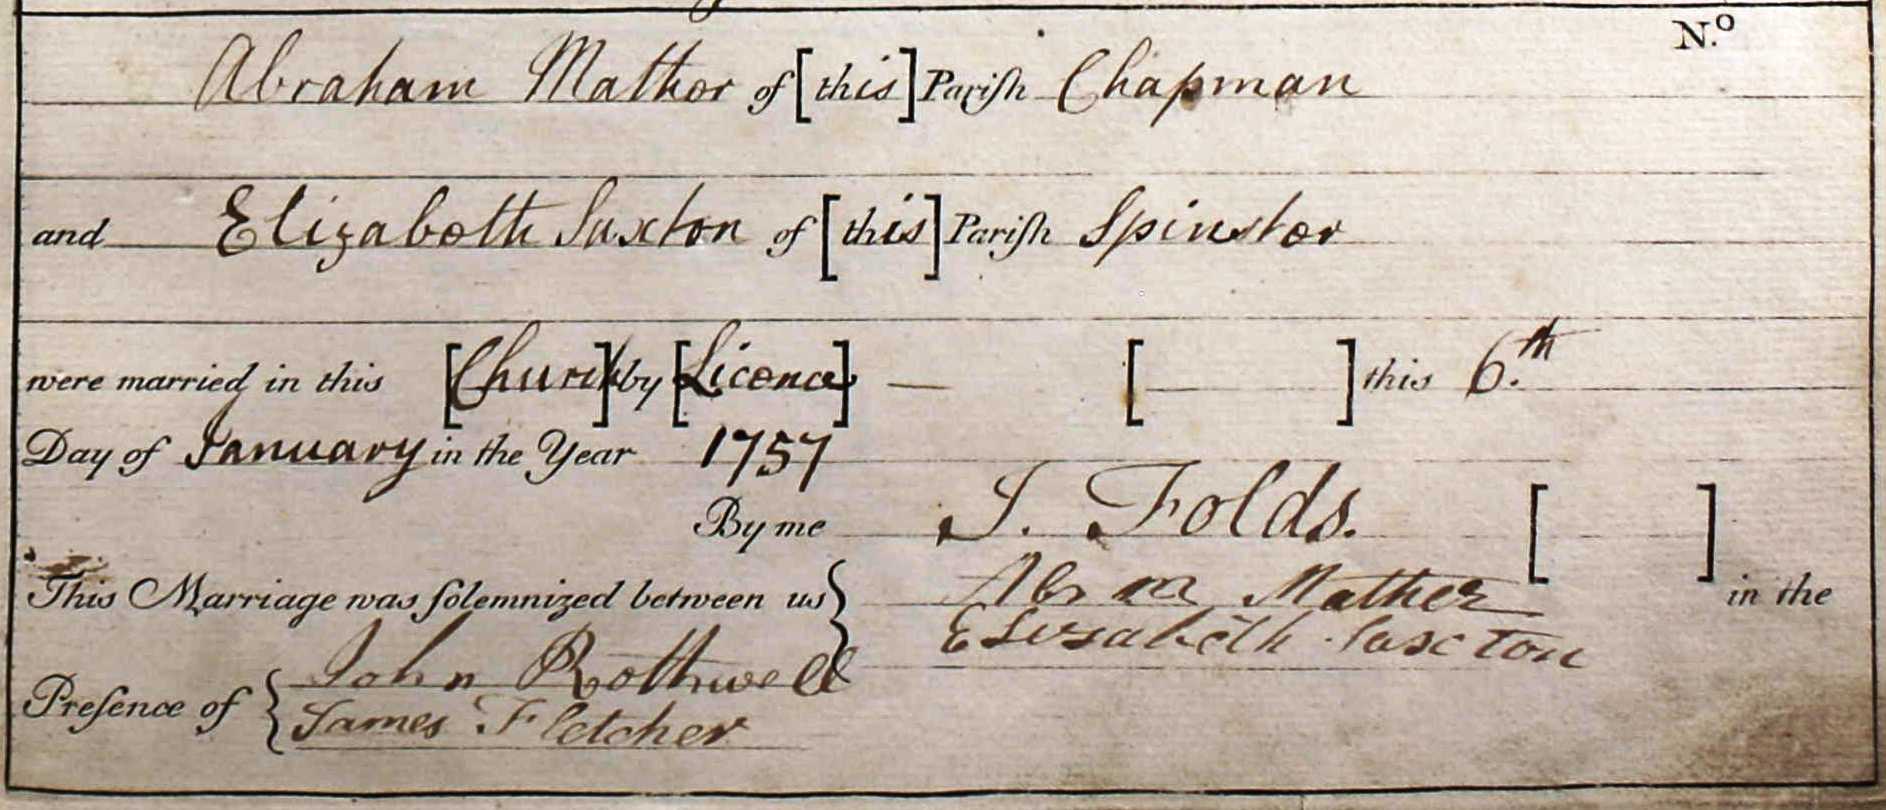 N.º
Abraham Mather of [this] Pariſh Chapman
and Elizabeth Saxton of [this] Pariſh Spinster
were married in this [Church] by [Licence] — [ ] this 6.th
Day of January in the Year 1757
By me J. Folds. [ ]
This Marriage was ſolemnized between us } Abrm Mather in the
Elizabeth Saxton
Preſence of { John Rothwell
James Fletcher